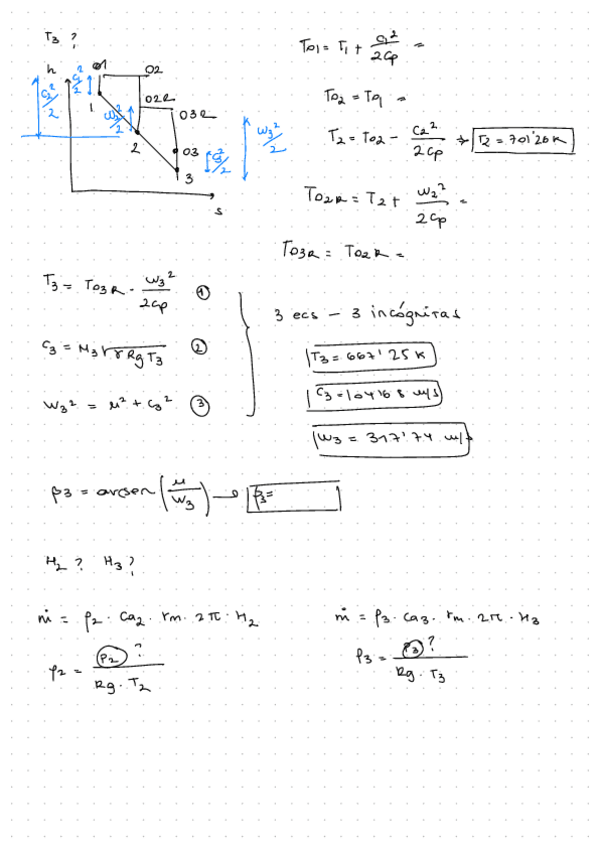 T3 ?
h
01
02
02R
03R
1
2
03
3
s
c2²/2
c1²/2
w2²/2
c3²/2
w3²/2
T01 = T1 + c1²/2cp =
T02 = T01 =
T2 = T02 - c2²/2cp → T2 = 701'26 K
T02R = T2 + w2²/2cp =
T03R = T02R =
T3 = T03R - w3²/2cp ①
c3 = M3 √(γ Rg T3) ②
w3² = u² + c3² ③
3 ecs - 3 incógnitas
T3 = 667'25 K
C3 = 104'68 m/s
W3 = 317'74 m/s
β3 = arcsen (u/W3) → β3 =
H2 ? H3 ?
ṁ = ρ2 · ca2 · rm · 2π · H2
ρ2 = P2 ? / Rg · T2
ṁ = ρ3 · ca3 · rm · 2π · H3
ρ3 = P3 ? / Rg · T3